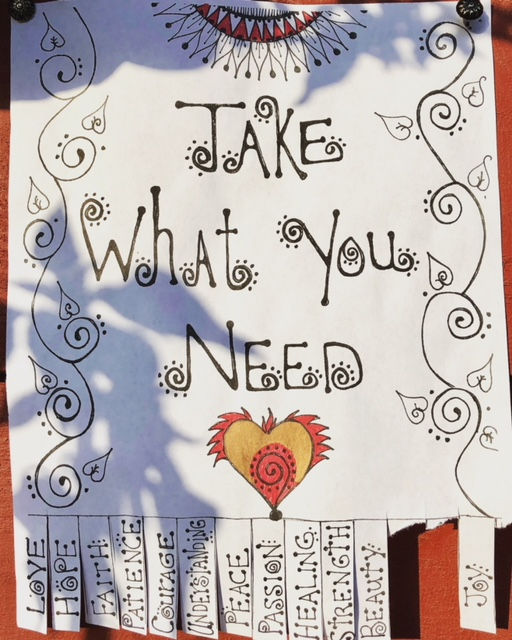 TAKE
What You
NEED
LOVE
HOPE
FAITH:
PATIENCE
COURAGE
UNDERSTANDING
PEACE
PASSION:
HEALING
STRENGTH
BEAUTY:
JOY: